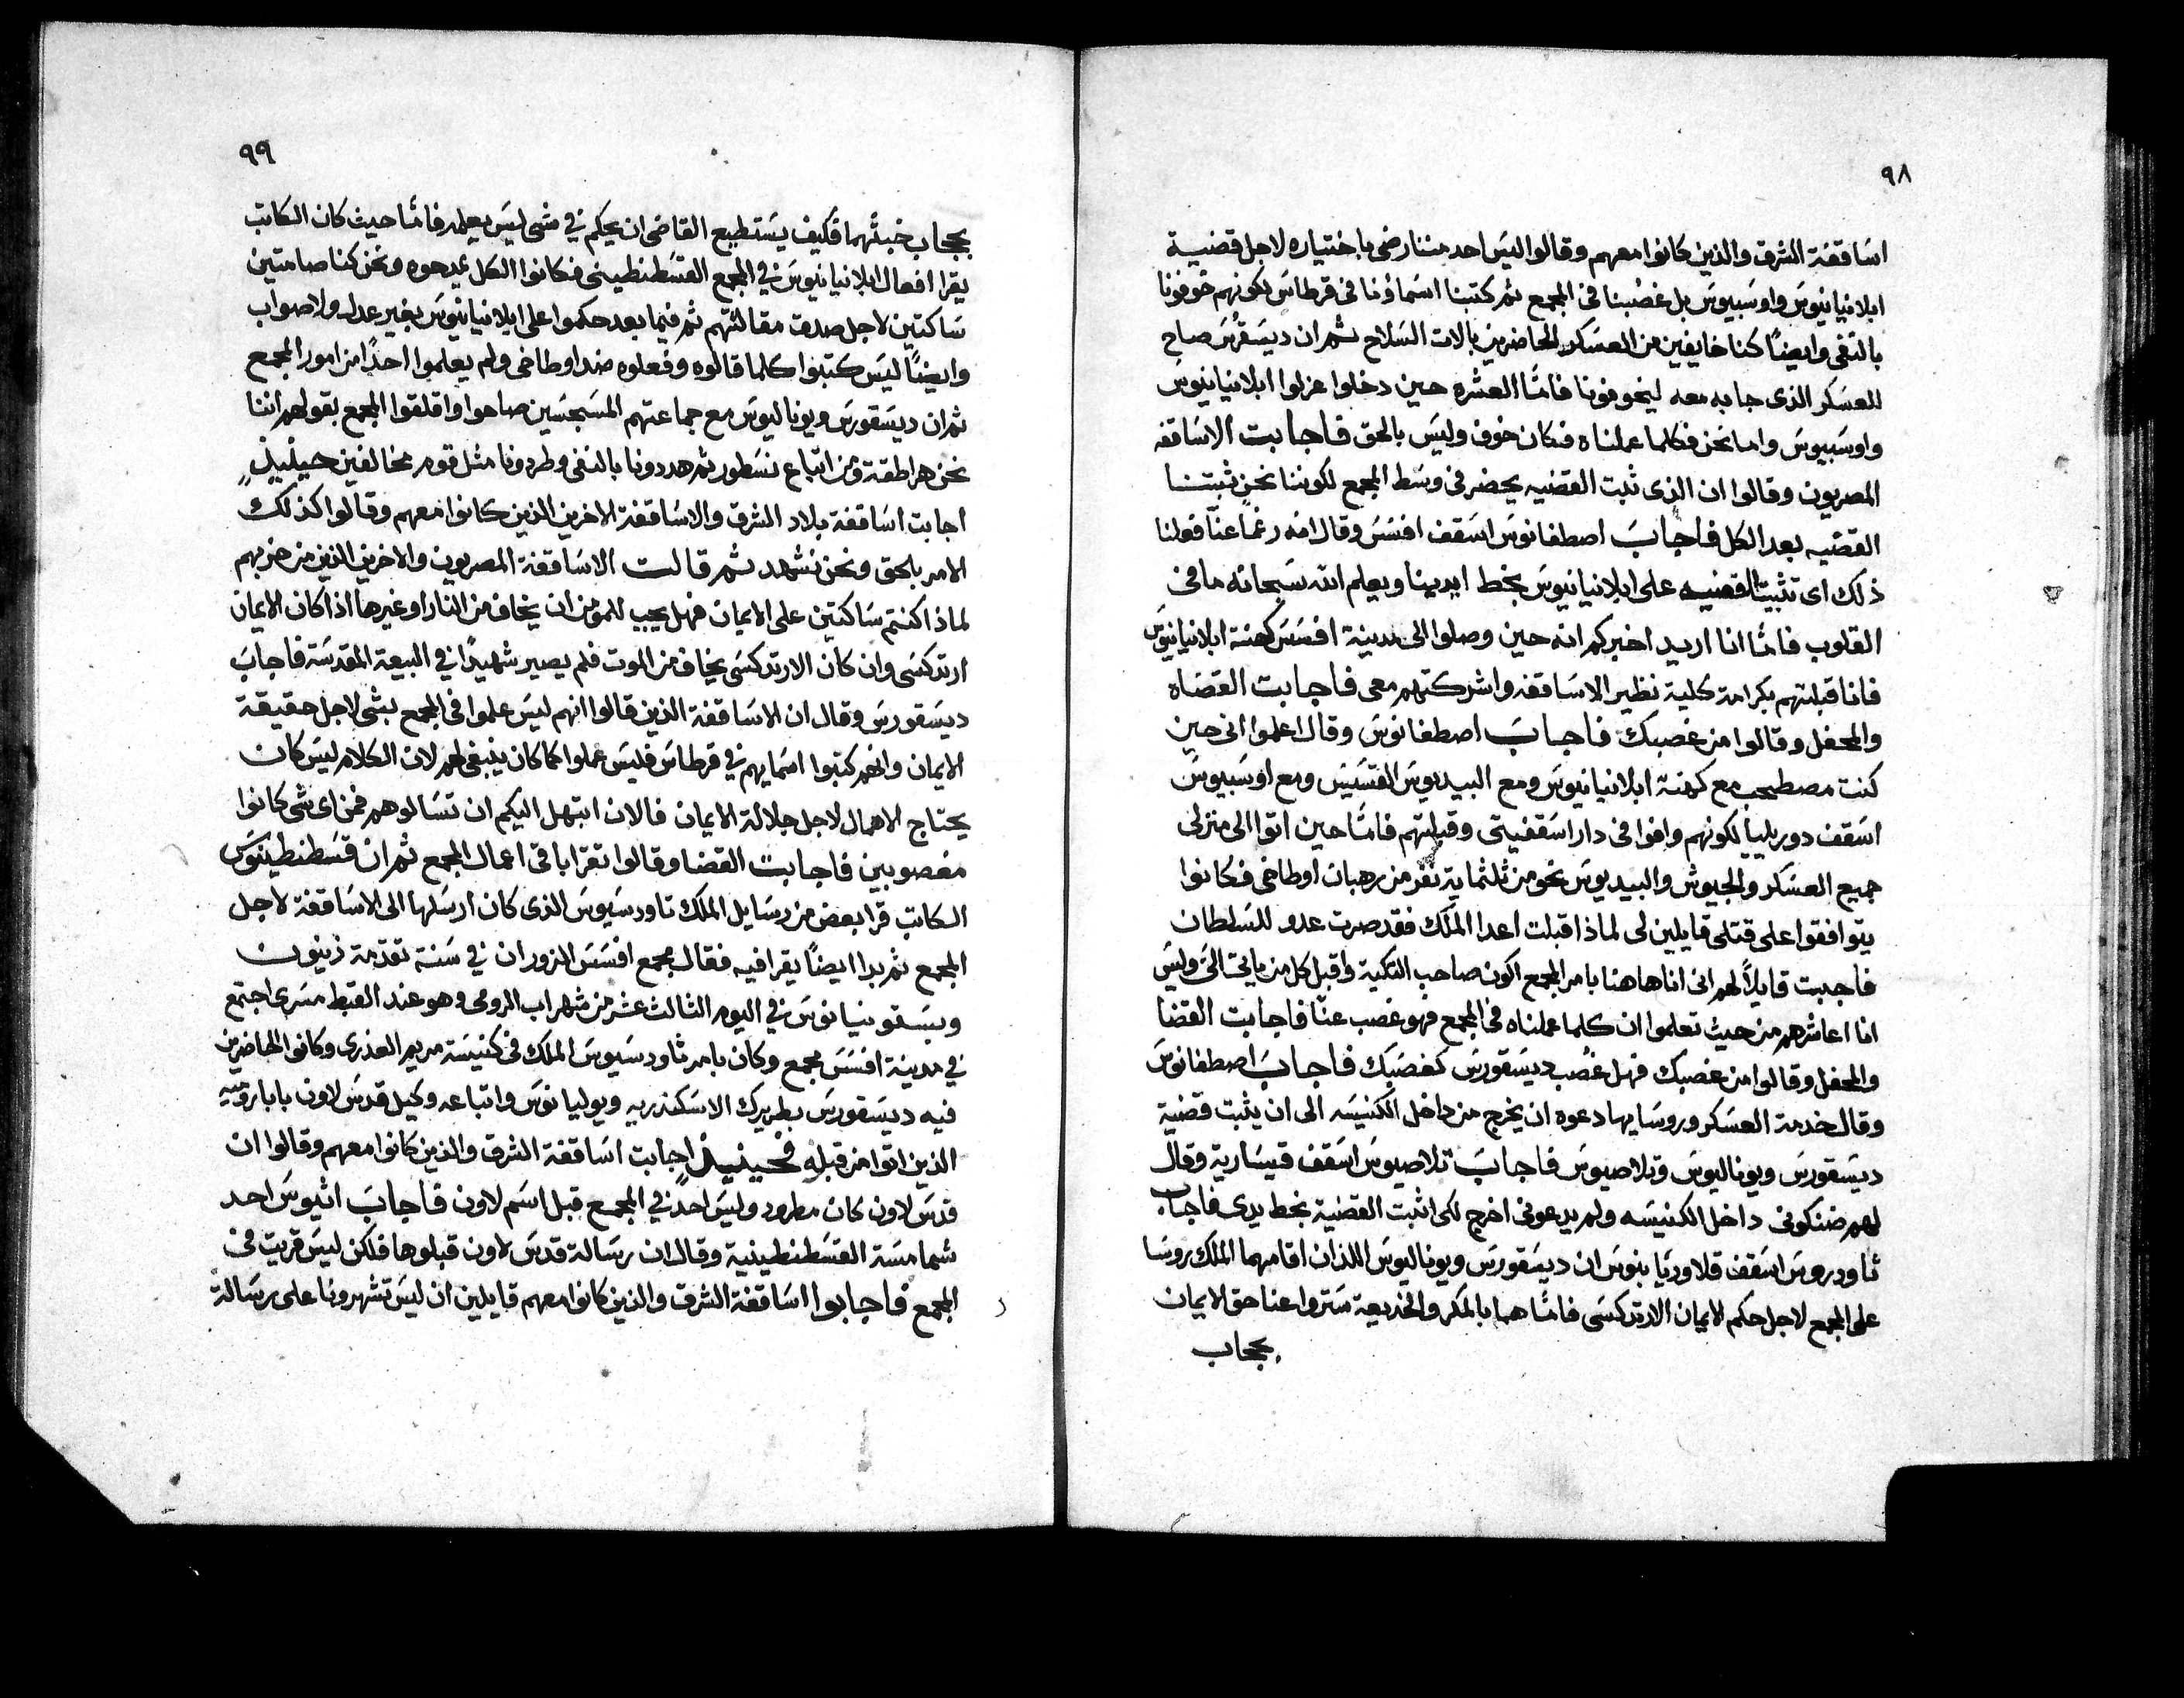 ٩٨
اساقفة الشرق والذين كانوا معهم وقالوا ليس احد مننا رضى باختياره لاجل قضية
ابلانيانيوس واوسبيوس بل غصبنا فى المجمع ثم كتبنا اسماؤنا فى قرطاس لكونهم خوفونا
بالنفى وايضاً كنا خايفين من العسكر الحاضرين بالات السلاح ثم ان ديسقرس صاح
للعسكر الذى جابه معه ليخوفونا فامّا العشره حين دخلوا عزلوا ابلانيانيوس
واوسبيوس واما نحن فكلما عملناه فكان خوف وليس بالحق فاجابت الاساقفه
المصريون وقالوا ان الذى ثبت القضيه يحضر فى وسط المجمع لكوننا نحن ثبتنا
القضيه بعد الكل فاجاب اصطفانوس اسقف افسس وقال انه رغماً عنّا فعلنا
ذلك اى تثبيت القضيه على ابلانيانيوس بخط ايدينا ويعلم الله سبحانه ما فى
القلوب فامّا انا اريد اخبركم انه حين وصلوا الى مدينة افسس كهنة ابلانيانيوس
فانا قبلتهم بكرامة كلية نظير الاساقفه واشركتهم معى فاجابت القضاه
والمحفل وقالوا من غصبك فاجاب اصطفانوس وقال اعلموا انى حين
كنت مصطحب مع كهنة ابلانيانيوس ومع البيديوس القسيس ومع اوسبيوس
اسقف دوريليا لكونهم وافوا فى دار اسقفيتى وقبلتهم فامّا حين اتوا الى منزلى
جميع العسكر والجيوش والبيديوس نحو من ثلثماية نفر من رهبان اوطاخى فكانوا
يتوافقوا على قتلى قايلين لى لماذا قبلت اعدا الملك فقد صرت عدو للسلطان
فاجبت قايلاً لهم انى انا هاهنا بامر المجمع اكون صاحب التكية واقبل كل من ياتى الىّ وليس
انا اعاشرهم من حيث تعلموا ان كلما عملناه فى المجمع فهو غصب عنّا فاجابت القضا
والمحفل وقالوا من غصبك فهل غصب ديسقورس كغصبك فاجاب اصطفانوس
وقال خدمة العسكر وروسايها دعوه ان يخرج من داخل الكنيسه الى ان يثبت قضية
ديسقورس ويوناليوس وتلاصيوس فاجاب تلاصيوس اسقف قيسارية وقال
لهم ضنكونى داخل الكنيسه ولم يدعونى اخرج لكى اثبت القضية بخط يدى فاجاب
ثاودروس اسقف قلاوديانوس ان ديسقورس ويوناليوس اللذان اقامهما الملك روسا
على المجمع لاجل حكم الايمان الارتدكسى فامّا هما بالمكر والخديعة ستروا عنا حق الايمان
بحجاب
٩٩
بحجاب خبثهما فكيف يستطيع القاضى ان يحكم في شى ليس يعلمه فامّا حيث كان الكاتب
يقرا افعال ابلانيانيوس في المجمع القسطنطينى فكانوا الكل يمدحوه ونحن كنا صامتين
ساكتين لاجل صدق مقالتهم ثم فيما بعد حكموا على ابلانيانيوس بغير عدل ولا صواب
وايضاً ليس كتبوا كلما قالوه وفعلوه ضد اوطاخى ولم يعلموا احداً من امور المجمع
ثم ان ديسقورس ويوناليوس مع جماعتهم المسجسين صاحوا واقلقوا المجمع بقولهم اننا
نحن هراطقة ومن اتباع نسطور ثم هددونا بالنفى وطردونا مثل قوم مخالفين حينيذٍ
اجابت اساقفة بلاد الشرق والاساقفة الاخرين الذين كانوا معهم وقالوا كذلك
الامر بالحق ونحن نشهد ثم قالت الاساقفة المصريون والاخرين الذين من حزبهم
لماذا كنتم ساكتين على الايمان فهل يجب للمومن ان يخاف من النار او غيرها اذا كان الايمان
ارتدكسى وان كان الارتدكسى يخاف من الموت فلم يصير شهيداً في البيعة المقدسة فاجاب
ديسقورس وقال ان الاساقفة الذين قالوا انهم ليس علموا فى المجمع بشى لاجل حقيقة
الايمان وانهم كتبوا اسمايهم في قرطاس فليس عملوا كما كان ينبغى لهم لان الكلام ليس كان
يحتاج الاهمال لاجل جلالة الايمان فالان ابتهل اليكم ان تسالوهم فمن اى شى كانوا
مغصوبين فاجابت القضا وقالوا تقرا باقى اعمال المجمع ثم ان قسطنطينوس
الكاتب قرا بعض من رسايل الملك تاودسيوس الذى كان ارسلها الى الاساقفة لاجل
المجمع ثم بدا ايضاً يقرا فيه فقال مجمع افسس المزور ان في سنة تقدمة زينون
وبستومنيانوس في اليوم الثالث عشر من شهر اب الرومى وهو عند القبط مسرى اجتمع
في مدينة افسس مجمع وكان بامر ثاودسيوس الملك فى كنيسة مريم العذرى وكانوا الحاضرين
فيه ديسقورس بطريرك الاسكندريه ويوليانوس واتباعه وكيل قدس لاون بابا روميه
الذين اتوا من قبله فحينيذٍ اجابت اساقفة الشرق والذين كانوا معهم وقالوا ان
قدس لاون كان مطرود وليس احد في المجمع قبل اسم لاون فاجاب اتيوس احد
شمامسة القسطنطينية وقال ان رسالة قدس لاون قبلوها فلكن ليس قريت فى
المجمع فاجابوا اساقفة الشرق والذين كانوا معهم قايلين ان ليس تشهرونا على رسالة